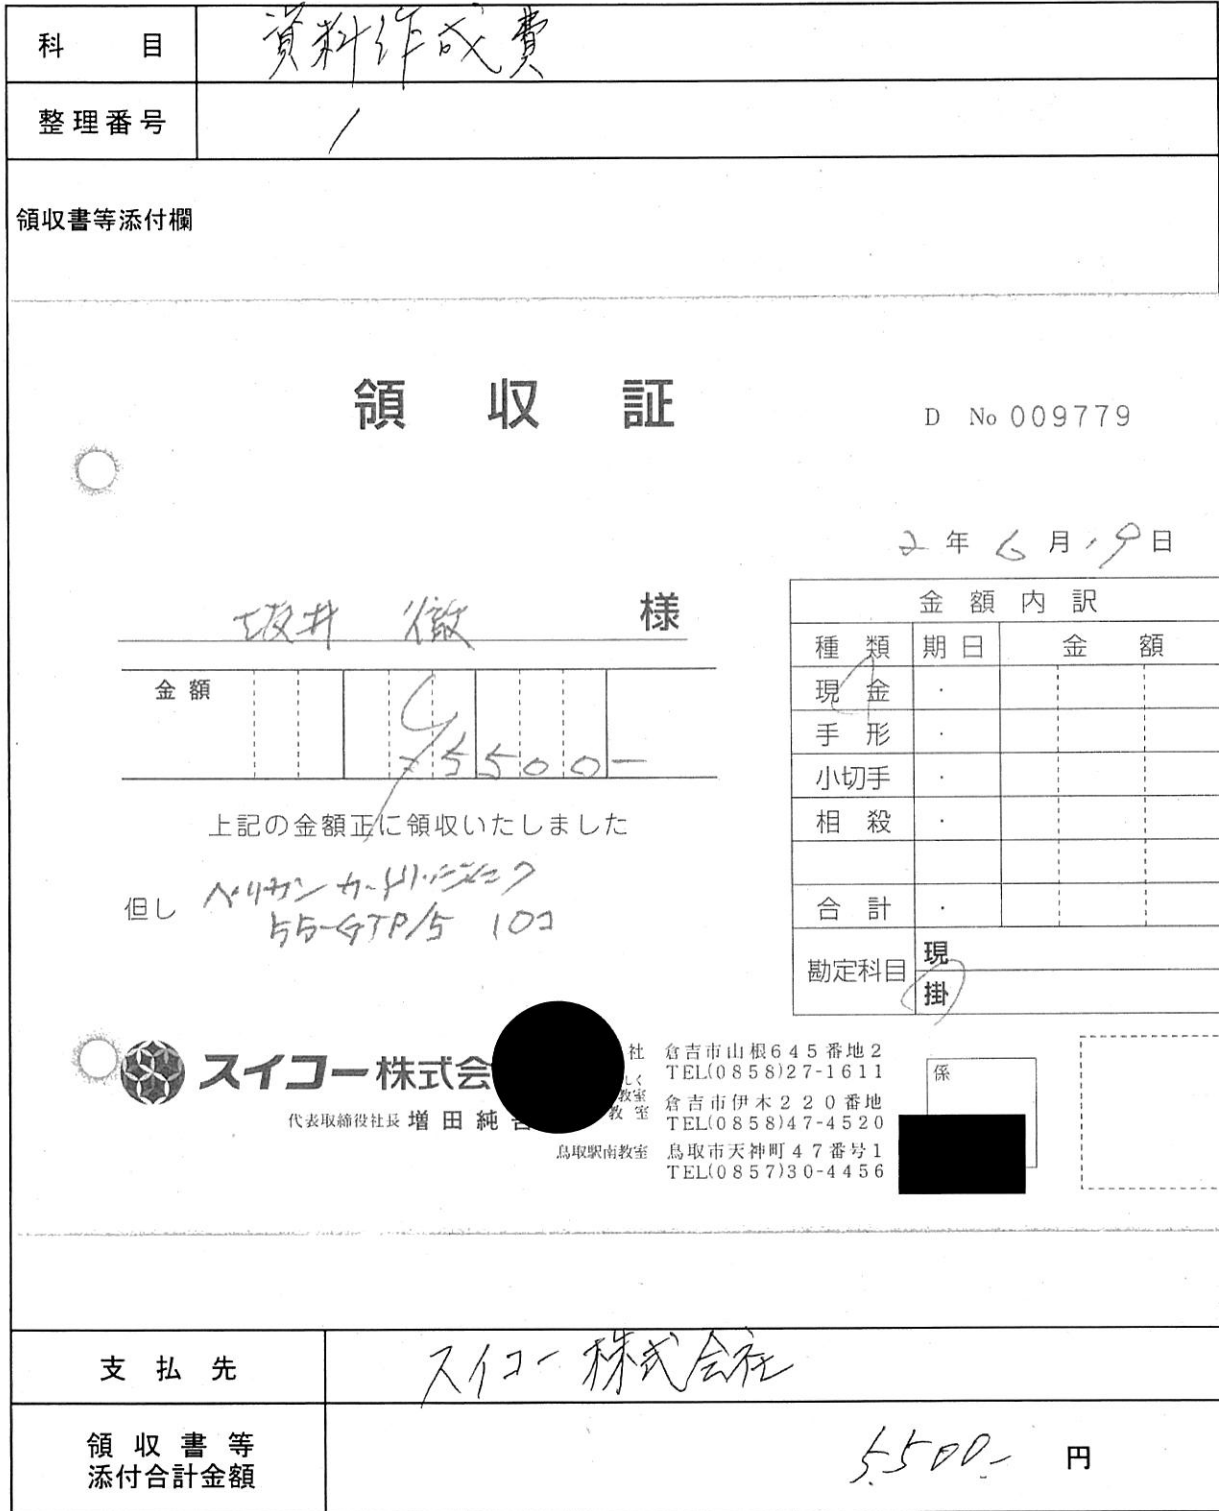 科 目 資料作成費
整理番号 1
領収書等添付欄
領 収 証
D No 009779
2 年 6 月 19 日
坂井 徹 様
金額 ¥5500-
上記の金額正に領収いたしました
但し ペリカンカートリッジインク
55-GTP/5 10コ
金額内訳
種類 期日 金額
現金 ・
手形 ・
小切手 ・
相殺 ・
合計 ・
勘定科目 現
掛
スイコー株式会
代表取締役社長 増田純
社 倉吉市山根645番地2
TEL(0858)27-1611
しく
教室 倉吉市伊木220番地
教室 TEL(0858)47-4520
鳥取駅南教室 鳥取市天神町47番号1
TEL(0857)30-4456
係
支払先 スイコー株式会社
領収書等
添付合計金額 5,500- 円